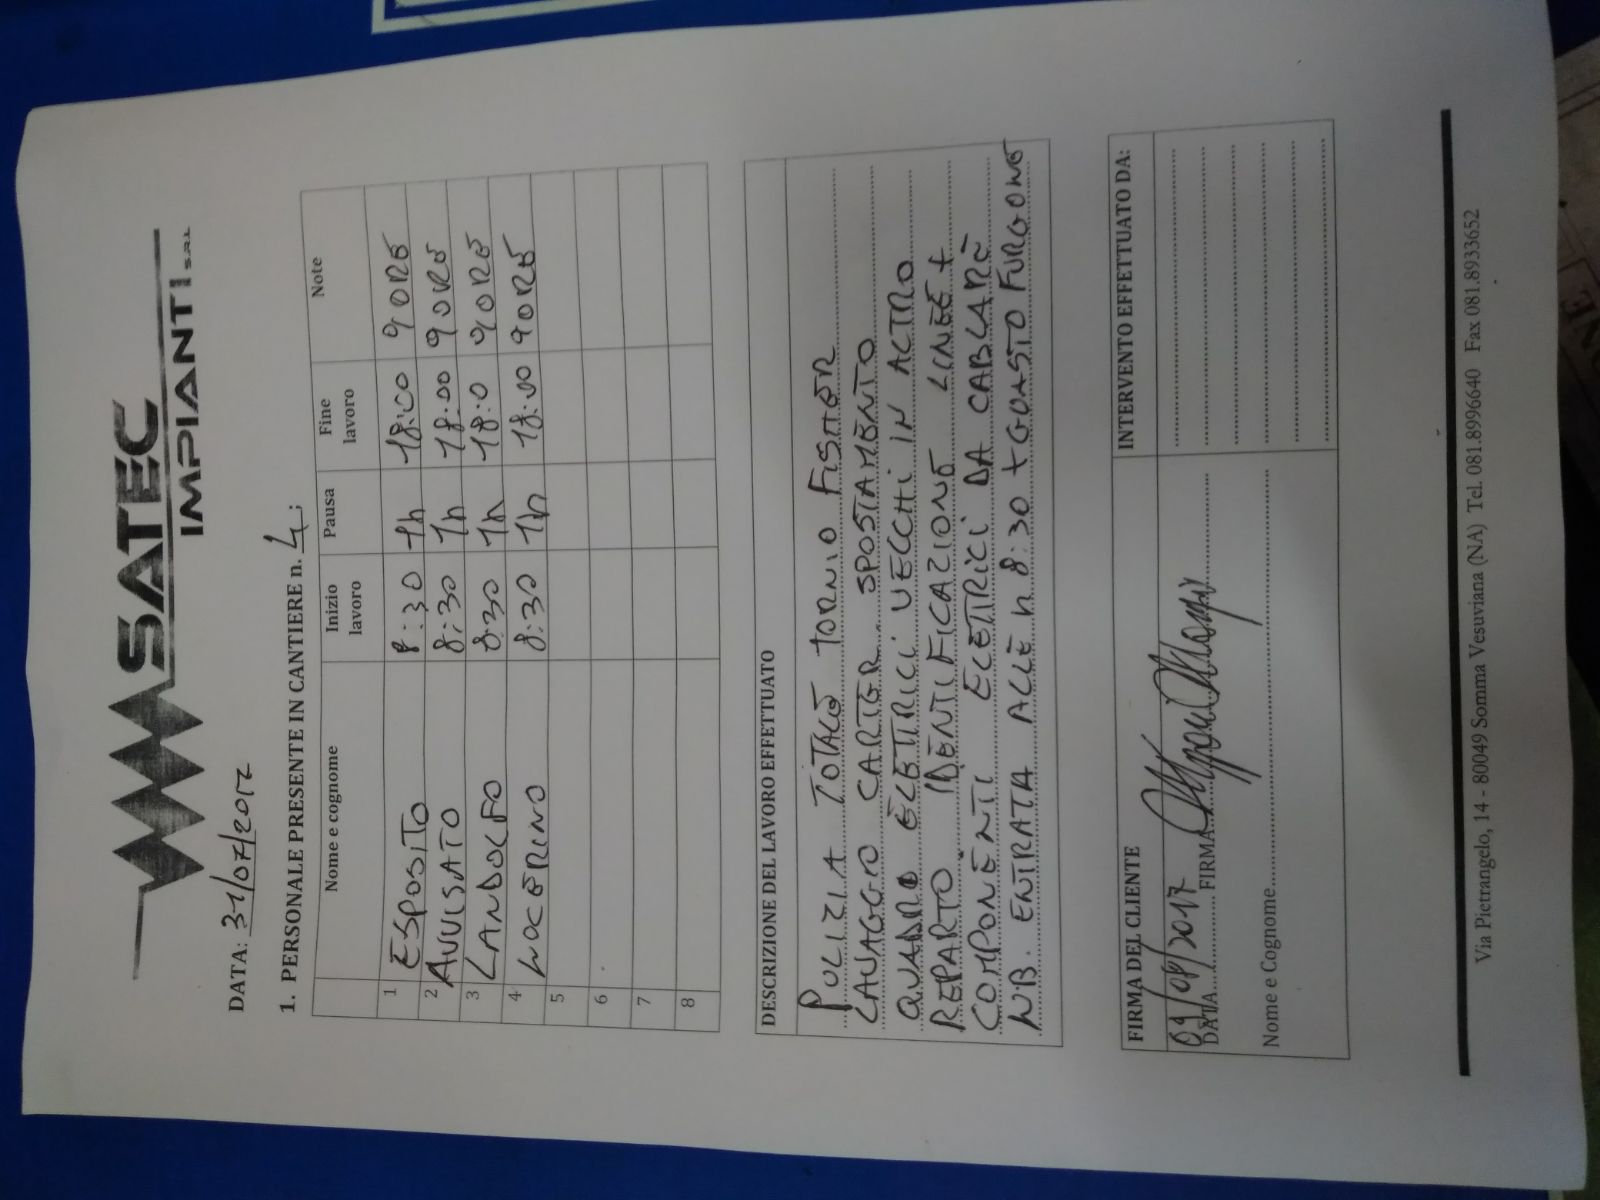 SATEC
IMPIANTI S.R.L.
DATA: 31/07/2017
1. PERSONALE PRESENTE IN CANTIERE n. 4 :
Nome e cognome Inizio lavoro Pausa Fine lavoro Note
1 ESPOSITO 8:30 1h 18:00 9 ORE
2 AVVISATO 8:30 1h 18:00 9 ORE
3 LANDOLFO 8:30 1h 18:0 9 ORE
4 NOCERINO 8:30 1h 18:00 9 ORE
5
6
7
8
DESCRIZIONE DEL LAVORO EFFETTUATO
PULIZIA TOTALE TORNIO FISHER
LAVAGGIO CARTER SPOSTAMENTO
QUADRO ELETTRICI VECCHI IN ALTRO
REPARTO IDENTIFICAZIONE LINEE +
COMPONENTI ELETTRICI DA CABLARE
NB. ENTRATA ALLE h 8:30 + GUASTO FURGONE
FIRMA DEL CLIENTE INTERVENTO EFFETTUATO DA:
DATA 09/08/2017 FIRMA
Nome e Cognome
Via Pietrangelo, 14 - 80049 Somma Vesuviana (NA) Tel. 081.8996640 Fax 081.8933652